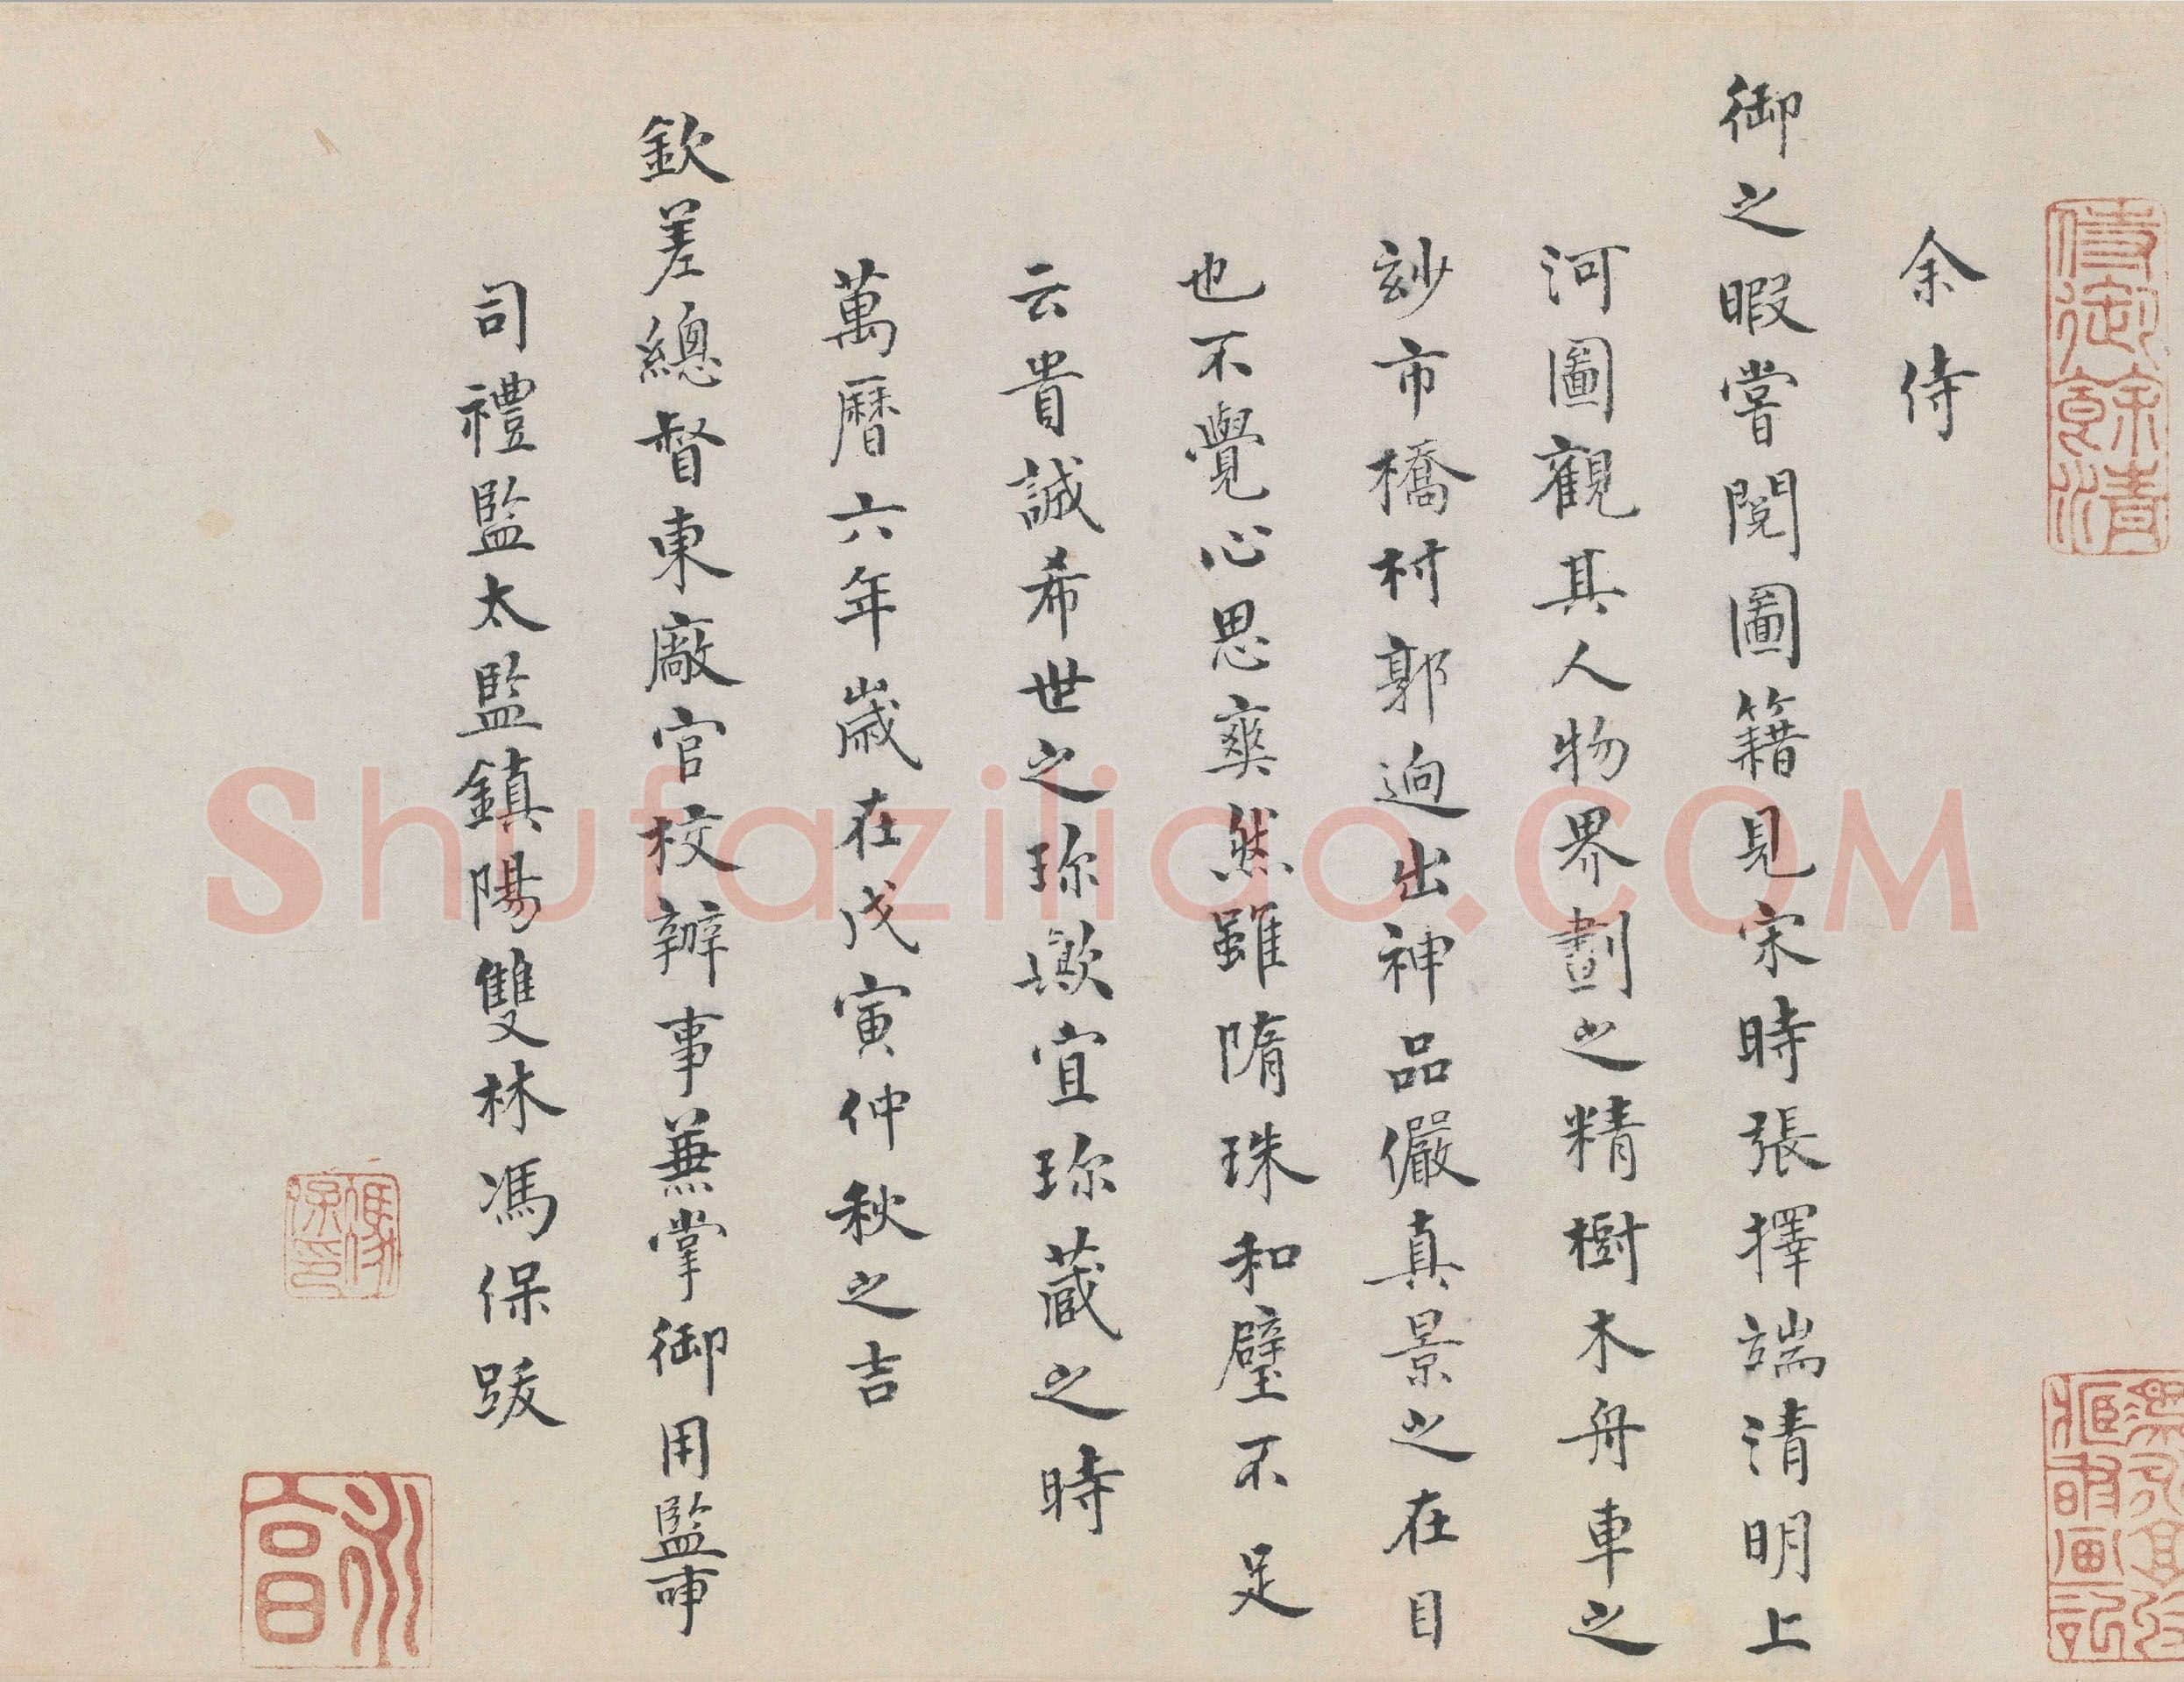 余侍
御之暇嘗閱圖籍見宋時張擇端清明上
河圖觀其人物界劃之精樹木舟車之
玅市橋村郭迥出神品儼真景之在目
也不覺心思爽然雖隋珠和璧不足
云貴誠希世之珎歟宜珎蔵之時
萬曆六年歲在戊寅仲秋之吉
欽差總督東廠官校辦事兼掌御用監事
司禮監太監鎮陽雙林馮保跋
侍御餘清
馮保印
永宮
Shufaziliao.COM